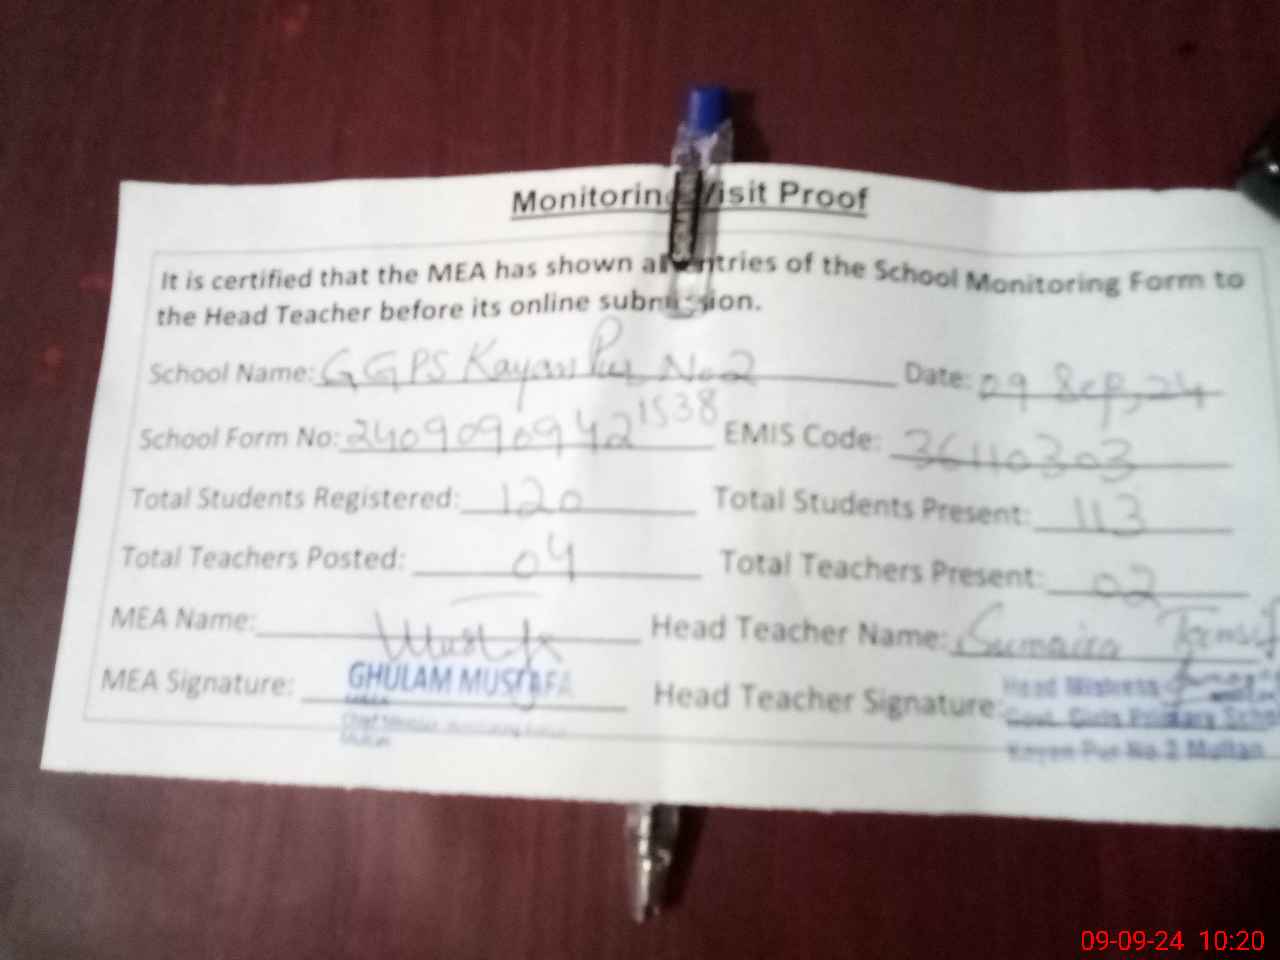 Monitoring Visit Proof
It is certified that the MEA has shown all entries of the School Monitoring Form to
the Head Teacher before its online submission.
School Name: GGPS Kayan Pur No 2 Date: 09 Sep, 24
School Form No: 24090909421538 EMIS Code: 36110303
Total Students Registered: 120 Total Students Present: 113
Total Teachers Posted: 04 Total Teachers Present: 02
MEA Name: Head Teacher Name: Sumaira
MEA Signature: GHULAM MUSTAFA Head Teacher Signature: Head Mistress
Govt. Girls Primary Scho
Kayan Pur No.2 Multan
09-09-24 10:20